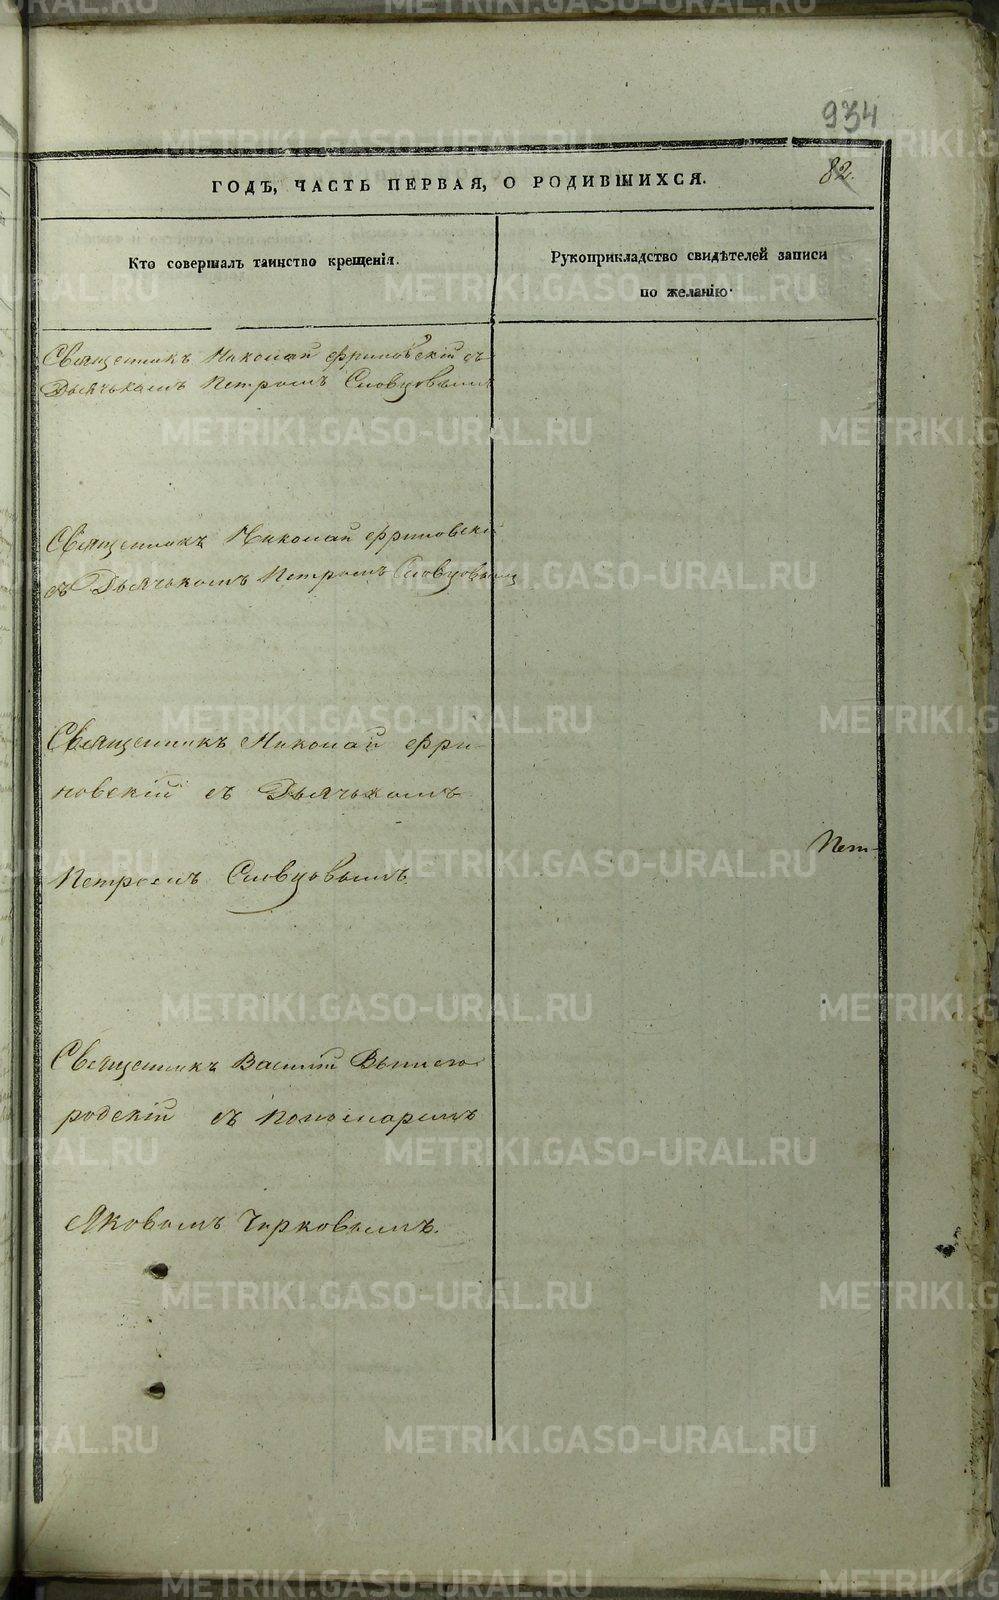 934
82.
ГОДѢ, ЧАСТЬ ПЕРВАЯ, О РОДИВШИХСЯ.
Кто совершалъ таинство крещенія.
Рукоприкладство свидѣтелей записи
по желанію.
Священникъ Николай Фриновскій съ
Дьячькомъ Петромъ Словцовымъ
Священникъ Николай Фриновскій
съ Дьячькомъ Петромъ Словцовымъ
Священникъ Николай Фри-
новскій съ Дьячькомъ
Пет-
Петромъ Словцовымъ
Священникъ Василій Вышего-
родскій съ Пономаремъ
Яковомъ Чирковымъ.
METRIKI.GASO-URAL.RU